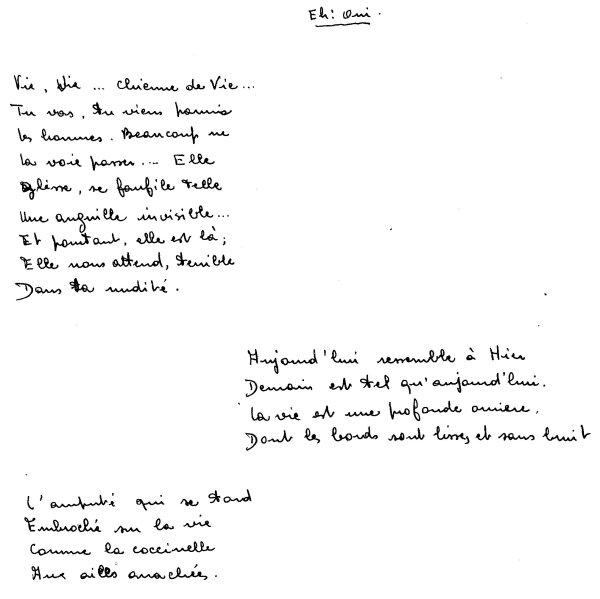 Eh: Oui.
Vie, Vie ... Chienne de Vie ...
Tu vas, tu viens parmis
les hommes. Beaucoup ne
la voie passer ... Elle
glisse, se faufile telle
Une anguille invisible ...
Et pourtant, elle est là ;
Elle nous attend, terrible
Dans ta nudité.
Aujourd'hui ressemble à Hier
Demain est tel qu'aujourd'hui.
La vie est une profonde orniere,
Dont les bords sont lisses et sans bruit
L'amputé qui se tord
Embroché sur la vie
Comme la coccinelle
Aux ailes arrachées.